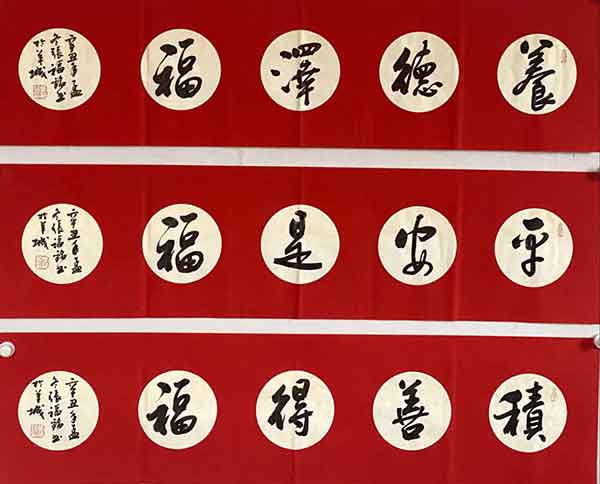 養德澤福
辛丑年孟
冬張福书
於羊城
平安是福
辛丑年孟
冬張福书
於羊城
積善得福
辛丑年孟
冬張福书
於羊城